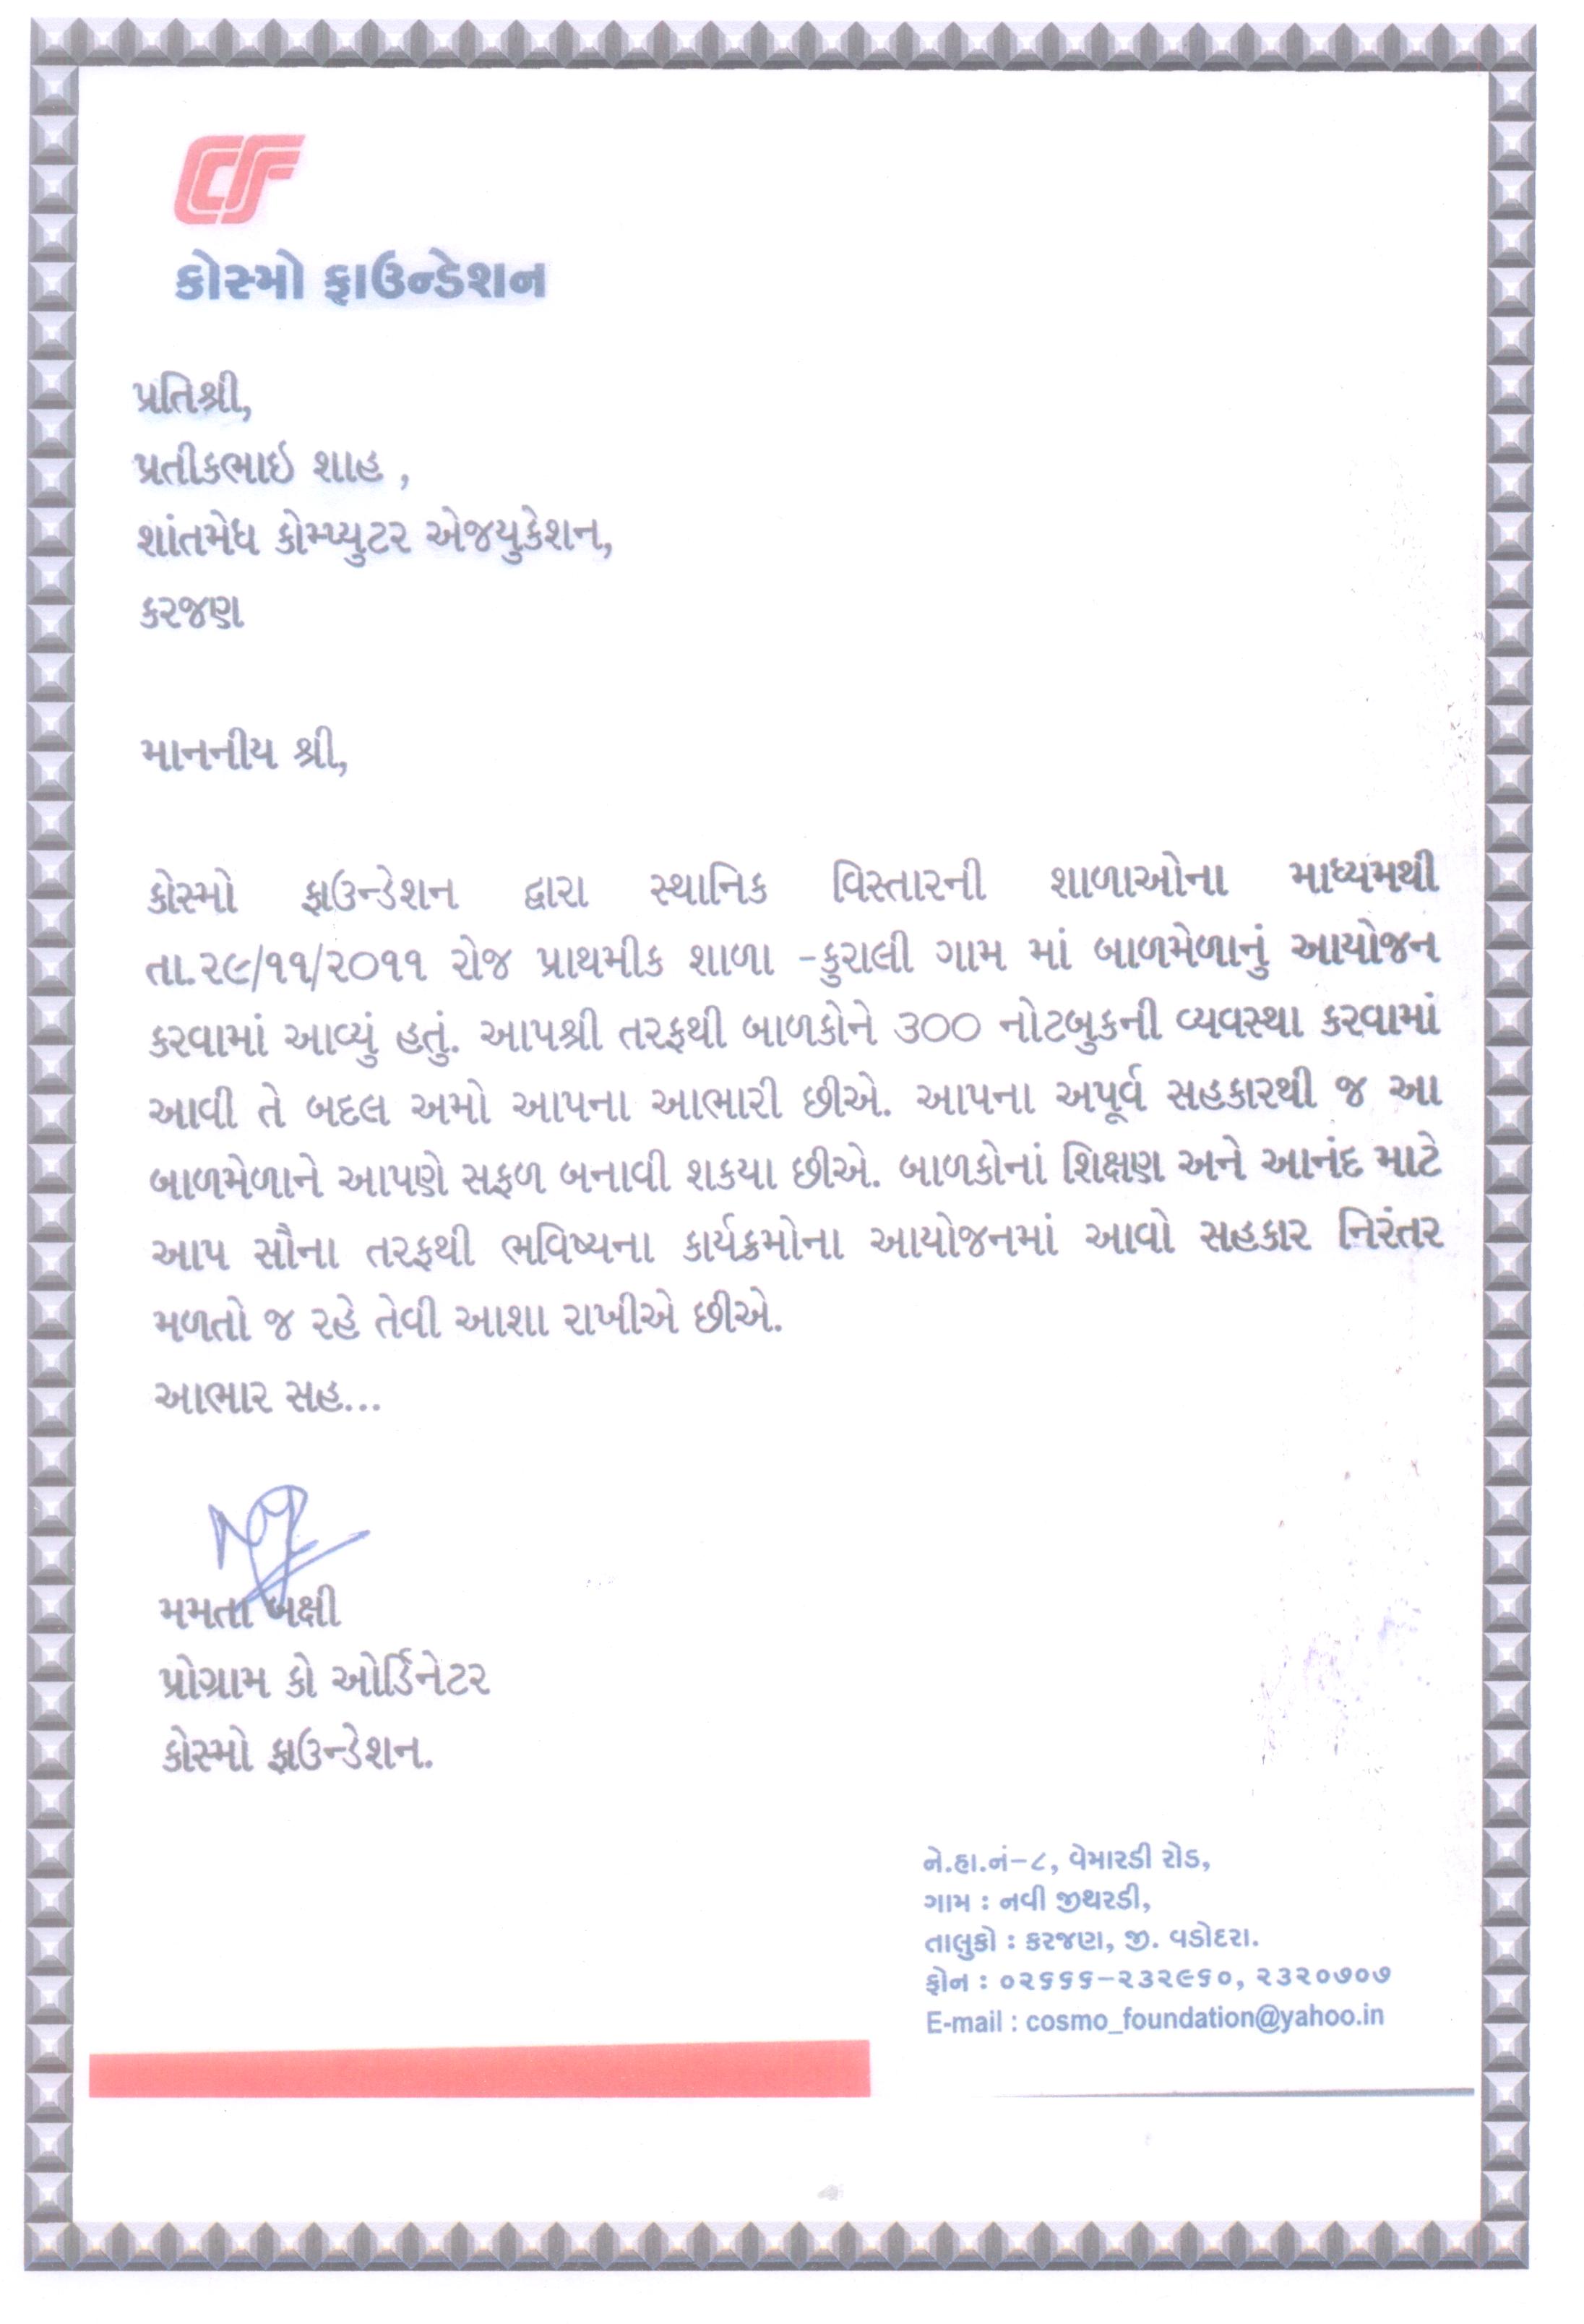 CF
કોસ્મો ફાઉન્ડેશન
પ્રતિશ્રી,
પ્રતીકભાઇ શાહ ,
શાંતમેઘ કોમ્પ્યુટર એજયુકેશન,
કરજણ
માનનીય શ્રી,
કોસ્મો ફાઉન્ડેશન દ્વારા સ્થાનિક વિસ્તારની શાળાઓના માધ્યમથી
તા.૨૯/૧૧/૨૦૧૧ રોજ પ્રાથમીક શાળા -કુરાલી ગામ માં બાળમેળાનું આયોજન
કરવામાં આવ્યું હતું. આપશ્રી તરફથી બાળકોને ૩૦૦ નોટબુકની વ્યવસ્થા કરવામાં
આવી તે બદલ અમો આપના આભારી છીએ. આપના અપૂર્વ સહકારથી જ આ
બાળમેળાને આપણે સફળ બનાવી શકયા છીએ. બાળકોનાં શિક્ષણ અને આનંદ માટે
આપ સૌના તરફથી ભવિષ્યના કાર્યક્રમોના આયોજનમાં આવો સહકાર નિરંતર
મળતો જ રહે તેવી આશા રાખીએ છીએ.
આભાર સહ...
મમતા બક્ષી
પ્રોગ્રામ કો ઓર્ડિનેટર
કોસ્મો ફાઉન્ડેશન.
ને.હા.નં-૮, વેમારડી રોડ,
ગામ : નવી જીથરડી,
તાલુકો : કરજણ, જી. વડોદરા.
ફોન : ૦૨૬૬૬-૨૩૨૯૬૦, ૨૩૨૦૭૦૭
E-mail : cosmo_foundation@yahoo.in